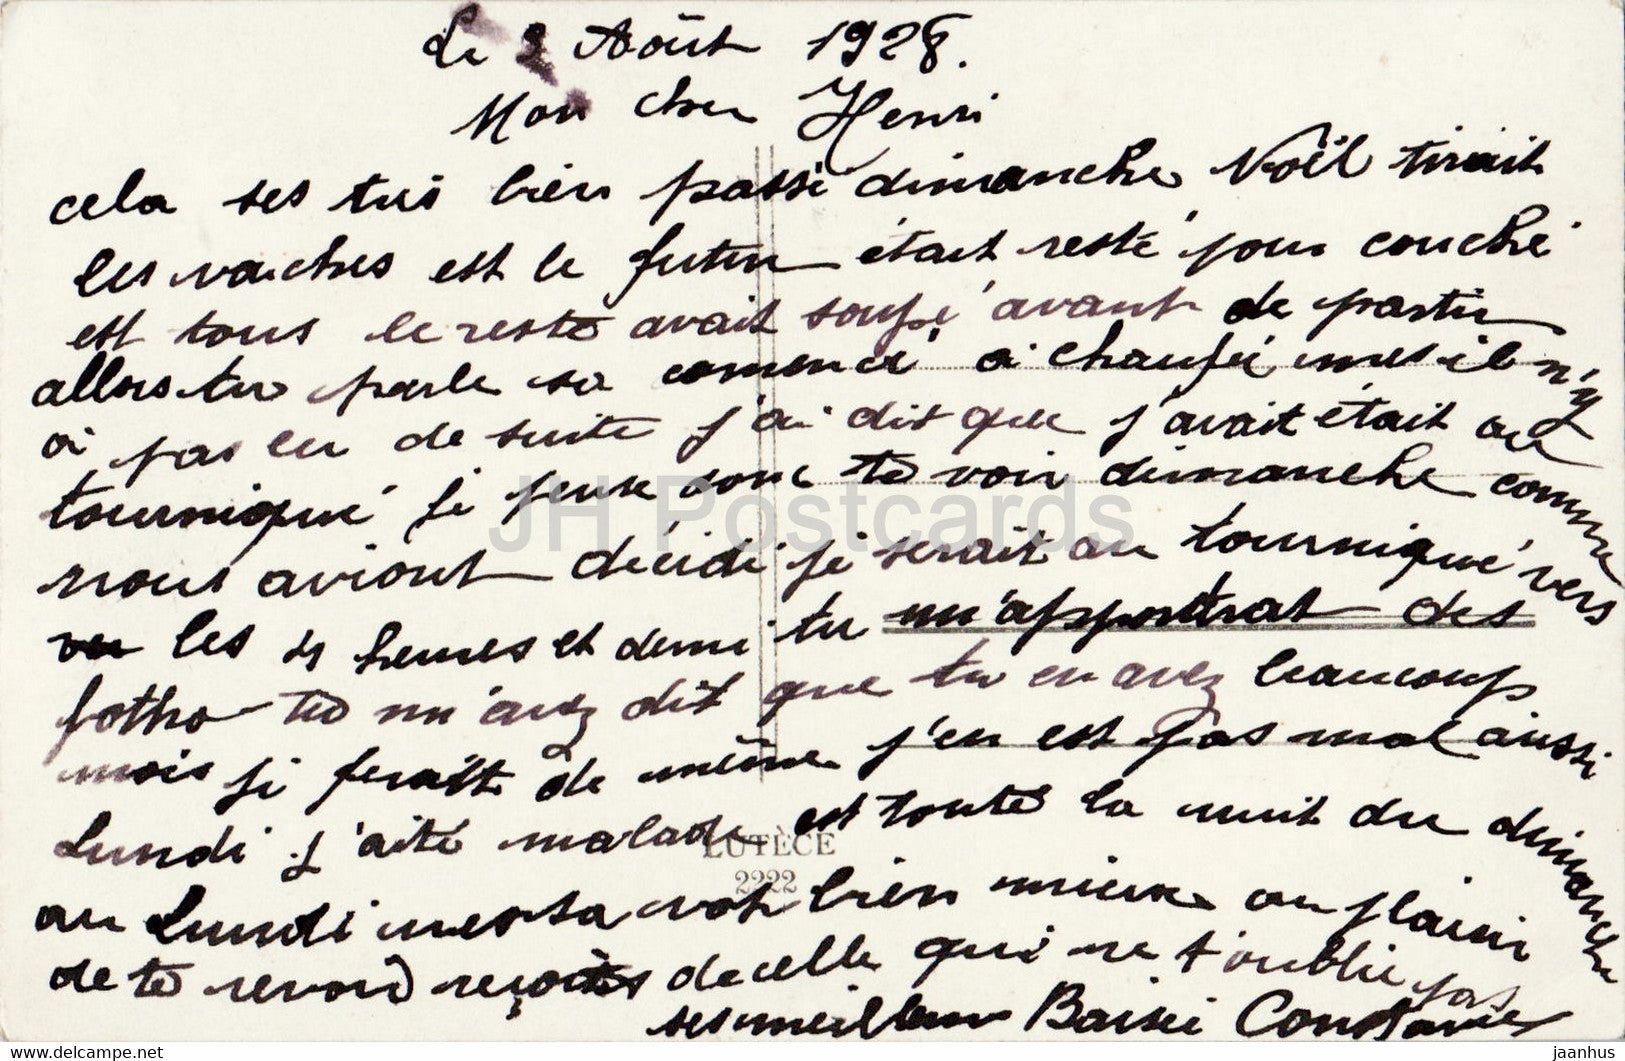 Le 2 Août 1928.
Mon cher Henri
cela ses tres bien passé dimanche Noël tirait
les vaches est le futur était resté pour couché
est tous le reste avait soupé avant de partir
allors tu parle sa comencé a chaufé mes il n'y
a pas eu de suite j'ai dit que j'avait était au
tourniqué je peux donc te voir dimanche comme
nous aviont décidé je serait au tourniqué vers
les 4 heures et demi tu m'apportrat des
fotho tu m'avez dit que tu en avez beaucoup
mois je ferait de même j'en est pas mal aussi
Lundi j'aité malade est toute la nuit du dimanche
au Lundi mes sa vat bien mieux au plaisir
de te revoir reçoites de celle qui ne t'oublie pas
ses meilleur Baisei Constance
LUTÈCE
2222
JH Postcards
delcampe.net
jaanhus